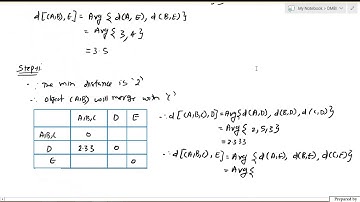 My Notebook > DMBI
d[(A,B), E] = Avg { d(A, E), d(B,E)}
= Avg { 3, 4}
= 3.5
Step-ii
∵ The min distance is '2'
∴ object (A,B) will merge with 'C'
A,B,C D E
A,B,C 0
D 2.33 0
E 0
∴ d[(A,B,C), D] = Avg{ d(A,D), d(B,D), d(C,D)}
= Avg{ 2, 5, 3}
= 2.333
∴ d[(A,B,C), E] = Avg { d(A,E), d(B,E), d(C,E)}
= Avg {
Prepared by